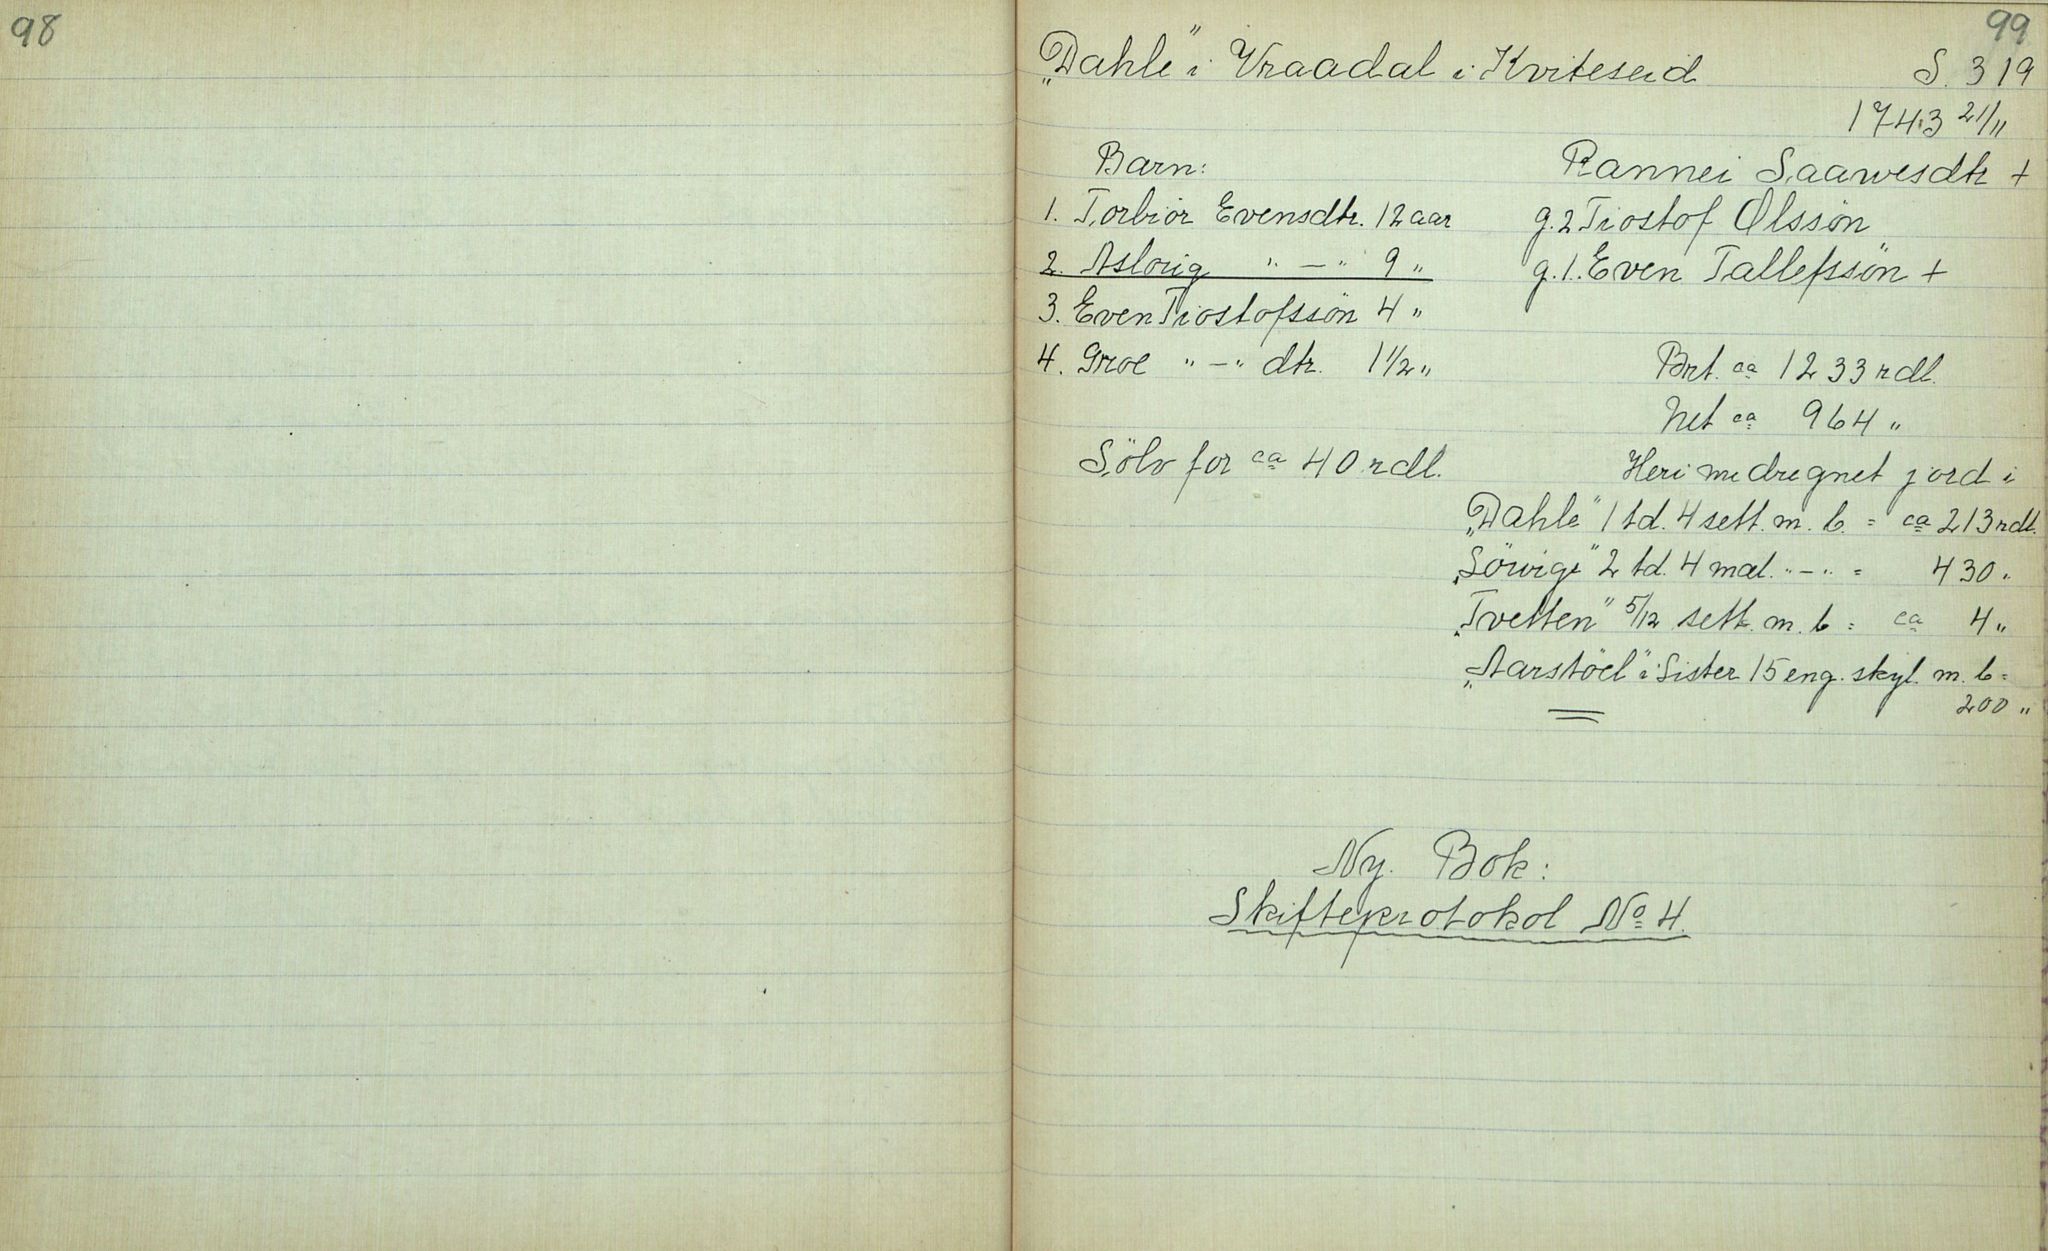 98
99
„Dahle" i Vraadal i Kviteseid S. 319
1743 21/11
Barn: Rannei Saavesdtr +
1. Torbiör Evensdtr. 12 aar g. 2 Tiostof Olssön
2. Aslovig " — " 9 " g. 1. Even Tallefssön +
3. Even Tiostofssön 4 "
4. Groe " — " dtr. 1 1/2 " Brt. ca 1233 rdl.
Net ca 964 "
Sölv for ca 40 rdl. Heri medregnet jord i
„Dahle" 1 td. 4 sett. m. b. = ca 213 rdl.
„Sörvige" 2 td. 4 mæl. " — " = 430 "
„Tvetten" 5/12 sett. m. b = ca 4 "
„Aarstöel" i Sister 15 eng. skyl. m. b =
200 "
Ny. Bok:
Skifteprotokol No 4.